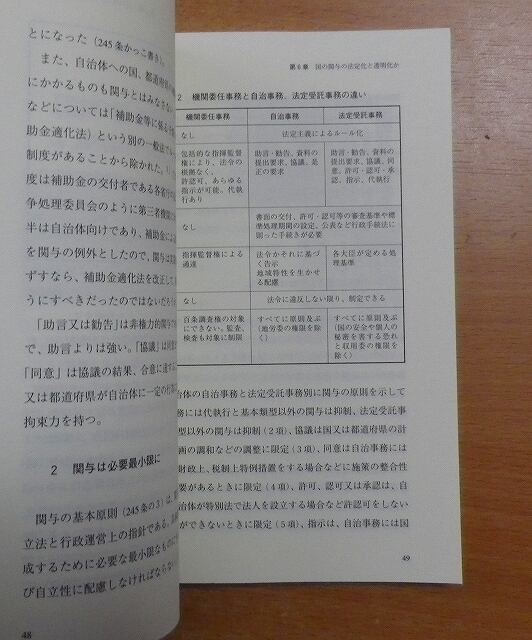 とになった（245条かっこ書き）。
また、自治体への国、都道府県
にかかるものも関与とはみなさ
などについては「補助金等に係る
助金適化法）という別の一般法
制度があることから除かれた。
度は補助金の交付者である各省
争処理委員会のように第三者機関
半は自治体向けであり、補助金に
を関与の例外としたので、関与は
ずすなら、補助金適化法を改正して
うにすべきだったのではないだろう
「助言又は勧告」は非権力的関与
で、助言よりは強い。「協議」は
「同意」は協議の結果、合意に達する
又は都道府県が自治体に一定の行
拘束力を持つ。
2 関与は必要最小限に
関与の基本原則（245条の3）は、
立法と行政運営上の指針である。
成するために必要な最小限なものに
び自立性に配慮しなければならない
48
第6章 国の関与の法定化と透明化か
2 機関委任事務と自治事務、法定受託事務の違い
機関委任事務 自治事務 法定受託事務
なし 法定主義によるルール化
包括的な指揮監督権により、法令の根拠なく、許認可、あらゆる指示が可能。代執行あり
助言・勧告、資料の提出要求、協議、是正の要求
助言・勧告、資料の提出要求、協議、同意、許可・認可・承認、指示、代執行
なし
書面の交付、許可・認可等の審査基準や標準処理期間の設定、公表など行政手続法に則った手続きが必要
指揮監督権による通達
法令かそれに基づく告示
地域特性を生かせる配慮
各大臣が定める処理基準
なし 法令に違反しない限り、制定できる
百条調査権の対象にできない。監査、検査も対象に制限
すべてに原則及ぶ（地労委の権限を除く）
すべてに原則及ぶ（国の安全や個人の秘密を害する恐れと収用委の権限を除く）
治体の自治事務と法定受託事務別に関与の原則を示して
務には代執行と基本類型以外の関与は抑制、法定受託事
型以外の関与は抑制（2項）、協議は国又は都道府県の計
画の調和などの調整に限定（3項）、同意は自治事務には
財政上、税制上特例措置をする場合などに施策の整合性
要があるときに限定（4項）、許可、認可又は承認は、自
治体が特別法で法人を設立する場合など許認可をしない
ができないときに限定（5項）、指示は、自治事務には国
49